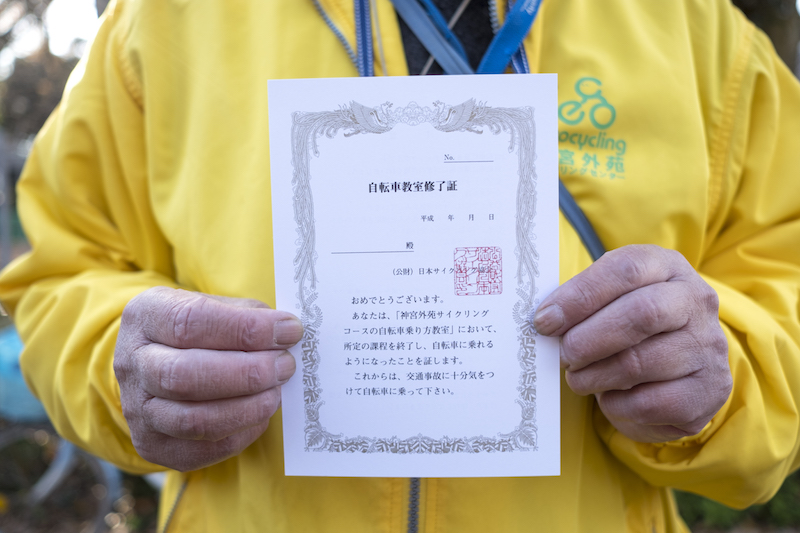 No.
自転車教室修了証
平成　年　月　日
殿
（公財）日本サイクリング協会
おめでとうございます。
あなたは、「神宮外苑サイクリング
コースの自転車乗り方教室」において、
所定の課程を終了し、自転車に乗れる
ようになったことを証します。
これからは、交通事故に十分気をつ
けて自転車に乗って下さい。
ocycling
宮外苑
リングセンター